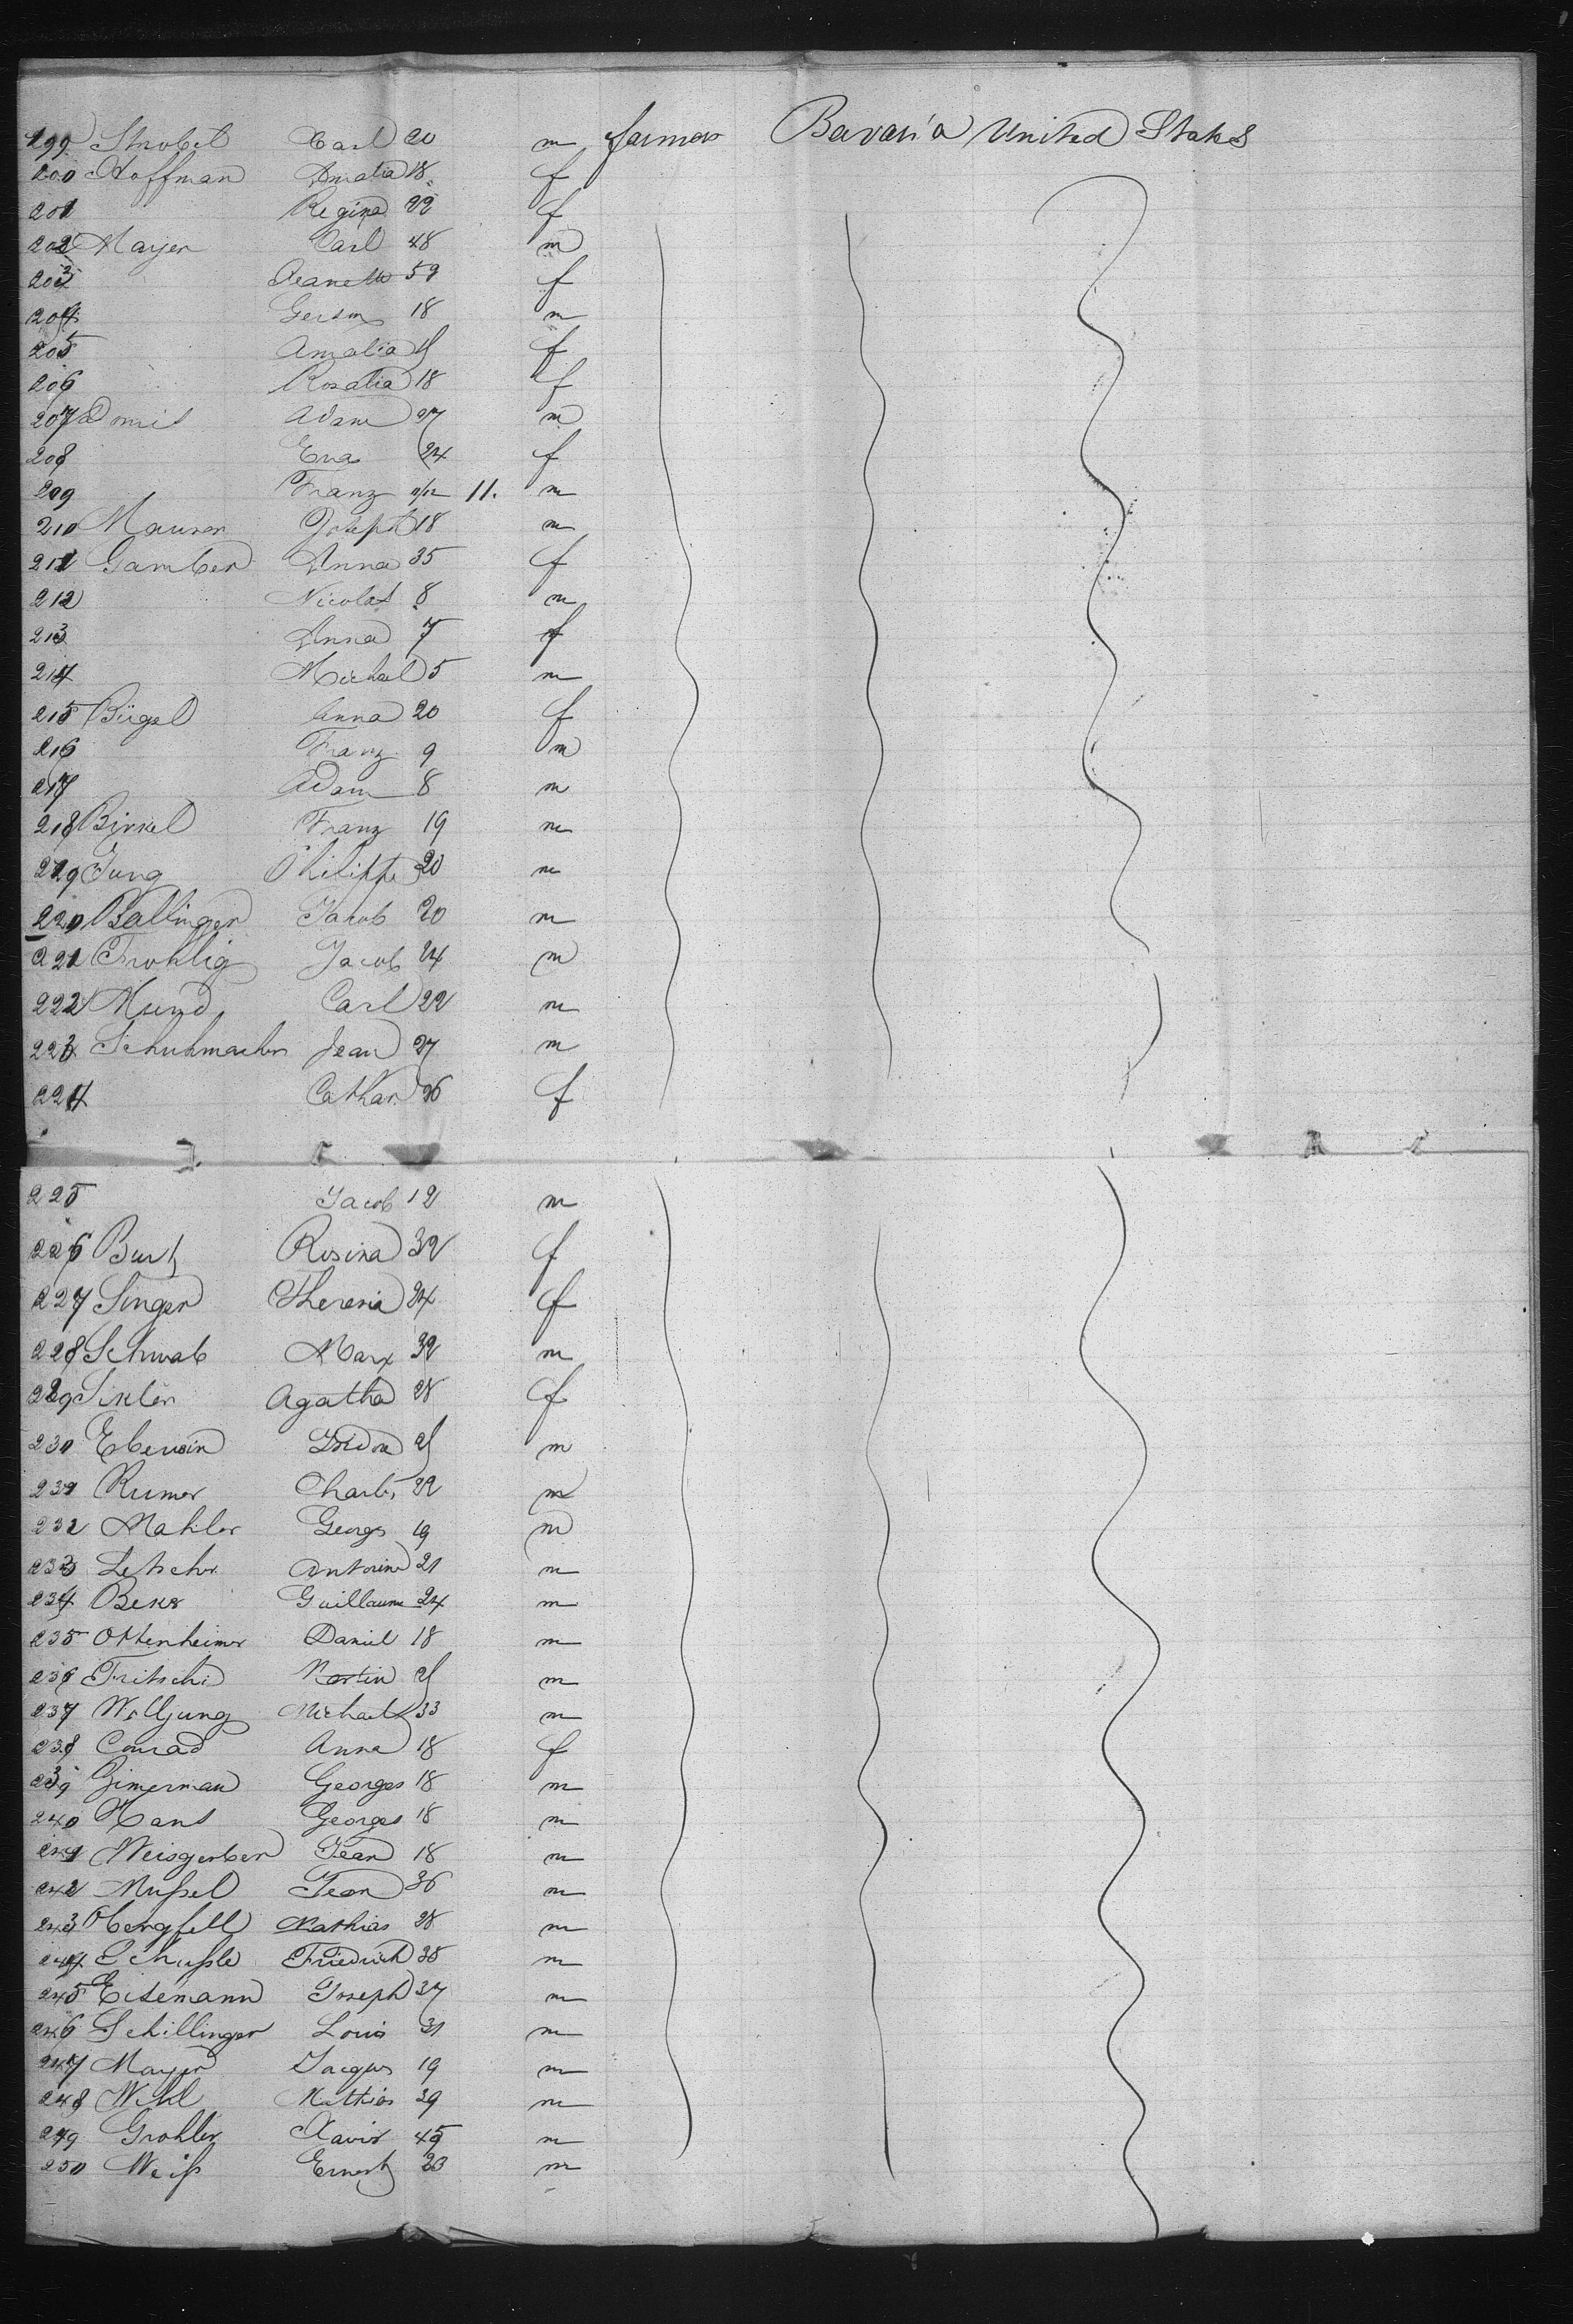 199 Strobel Carl 20 m farmer Bavaria United States
200 Hoffman Amalia 18 f
201 Regina 22 f
202 Mayer Carl 48 m
203 Jeanette 59 f
204 18 m
205 Amalia f
206 Rosalia 18 f
207 Adam 27 m
208 Eva 24 f
209 Franz 11/12 11. m
210 Maurer Joseph 18 m
211 Gamber Anna 35 f
212 Nicolas 8 m
213 Anna 7 f
214 Michael 5 m
215 Bügel Anna 20 f
216 Franz 9 m
217 Adam 8 m
218 Birkel Franz 19 m
219 Jung Philippe 20 m
220 Ballinger Jacob 20 m
221 Frohlig Jacob 24 m
222 Mund Carl 22 m
223 Schuhmacher Jean 27 m
224 Cathar 26 f
225 Jacob 12 m
226 Rosina 32 f
227 Singer Theresia 24 f
228 Schwab Marx 32 m
229 Sikler Agatha 28 f
230 Eberwin Isidor m
231 Rumer Charles 22 m
232 Mahler Georgs 19 m
233 Letscher Antoine 21 m
234 Beker Guillaume 24 m
235 Ottenheimer Daniel 18 m
236 Fritschi Martin m
237 Wolljung Michael 33 m
238 Conrad Anna 18 f
239 Zimerman Georges 18 m
240 Hans Georges 18 m
241 Weisgerber Jean 18 m
242 Mußel Jean 36 m
243 Obergfell Mathias 28 m
244 Schußle Friedrich 38 m
245 Eisemann Joseph 37 m
246 Schillinger Louis 31 m
247 Mayer Jacques 19 m
248 Wehl Mathias 39 m
249 Grohler Xavier 45 m
250 Weiß Ernest 23 m